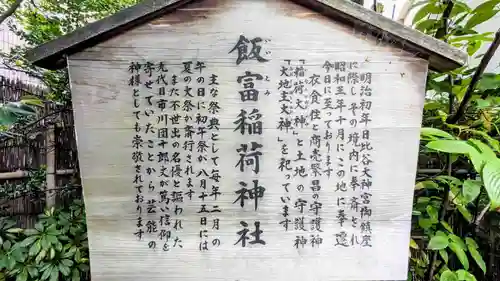 飯富稲荷神社
いいとみ
明治初年日比谷大神宮御鎮座
に際しその境内に奉斎され
昭和三年十月にこの地に奉遷
今日に至っております
衣食住と商売繁昌の守護神
「稲荷大神」と土地の守護神
「大地主大神」を祀っています
主な祭典として毎年二月の
午の日に初午祭が八月十五日には
夏の文月祭が奉仕されます
また不世出の名優と謳われた
九代目市川団十郎丈が篤い信仰を
寄せていたことから芸能の
神様としても崇敬されております